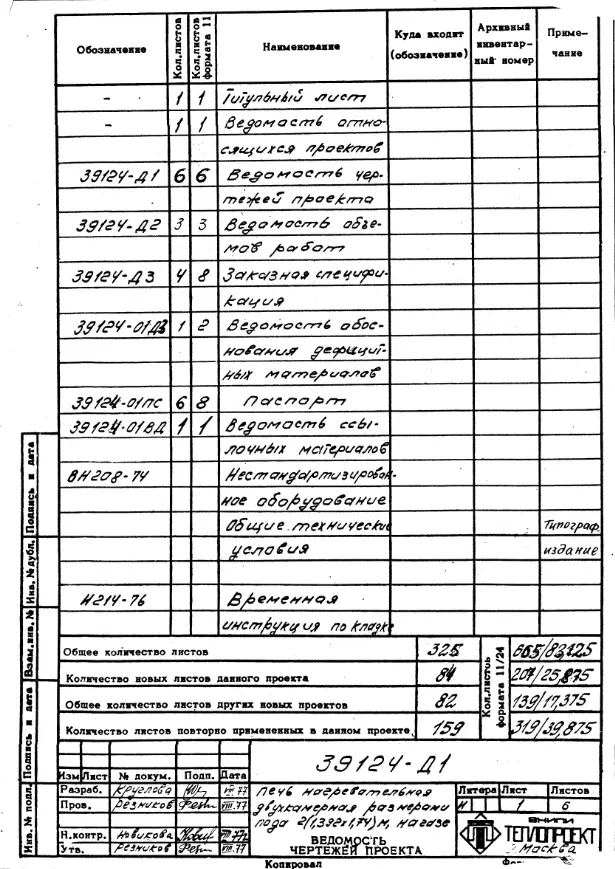 Обозначение Кол.листов Кол.листов формата 11 Наименование Куда входит (обозначение) Архивный инвентарный номер Примечание
- 1 1 Титульный лист
- 1 1 Ведомость отно-
сящихся проектов
39124-Д1 6 6 Ведомость чер-
тежей проекта
39124-Д2 3 3 Ведомость объе-
мов работ
39124-Д3 4 8 Заказная специфи-
кация
39124-01Д3 1 2 Ведомость обос-
нования дефицит-
ных материалов
39124-01ПС 6 8 Паспорт
39124-01ВД 1 1 Ведомость ссы-
лочных материалов
ВН208-74 Нестандартизирован-
ное оборудование
Общие технические Типограф.
условия издание
И214-76 Временная
инструкция по кладке
Общее количество листов 325 665/83,125
Количество новых листов данного проекта 84 207/25,875
Общее количество листов других новых проектов 82 139/17,375
Количество листов повторно примененных в данном проекте 159 319/39,875
Кол.листов формата 11/24
39124-Д1
Изм Лист № докум. Подп. Дата
Разраб. Круглова VIII.77
Пров. Резников VIII.77
Н.контр. Новикова
Утв. Резников VIII.77
Печь нагревательная
двухкамерная размерами
пода 2(1,392х1,74)м, на газе
ВЕДОМОСТЬ
ЧЕРТЕЖЕЙ ПРОЕКТА
Литера Лист Листов
И 1 6
ВНИПИ
ТЕПЛОПРОЕКТ
Москва
Копировал
Инв. № подл. Подпись и дата Взам.инв.№ Инв.№ дубл. Подпись и дата